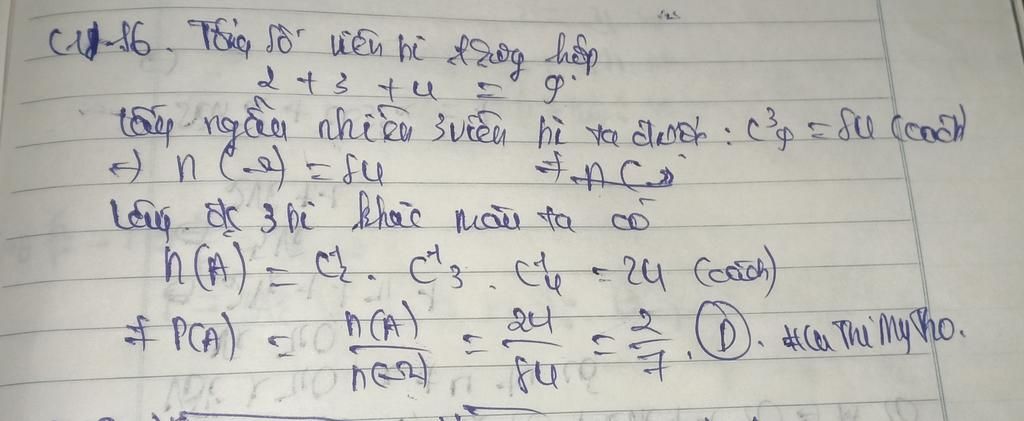 Câu 16. Tổng số viên bi trong hộp
2 + 3 + 4 = 9
Lấy ngẫu nhiên 3 viên bi ta được: C³₉ = 84 (cách)
=> n(Ω) = 84
Lấy đc 3 bi khác màu ta có
n(A) = C¹₂ . C¹₃ . C¹₄ = 24 (cách)
=> P(A) = n(A)/n(Ω) = 24/84 = 2/7. D. Thi My Tho.